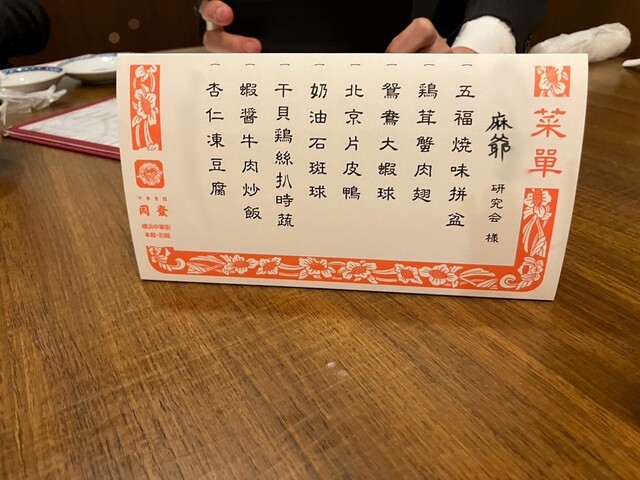 菜單
麻爺 研究会 様
一 五福焼味拼盆
一 鶏茸蟹肉翅
一 鴛鴦大蝦球
一 北京片皮鴨
一 奶油石斑球
一 干貝鶏絲扒時蔬
一 蝦醬牛肉炒飯
一 杏仁凍豆腐
横浜中華街
本館・別館